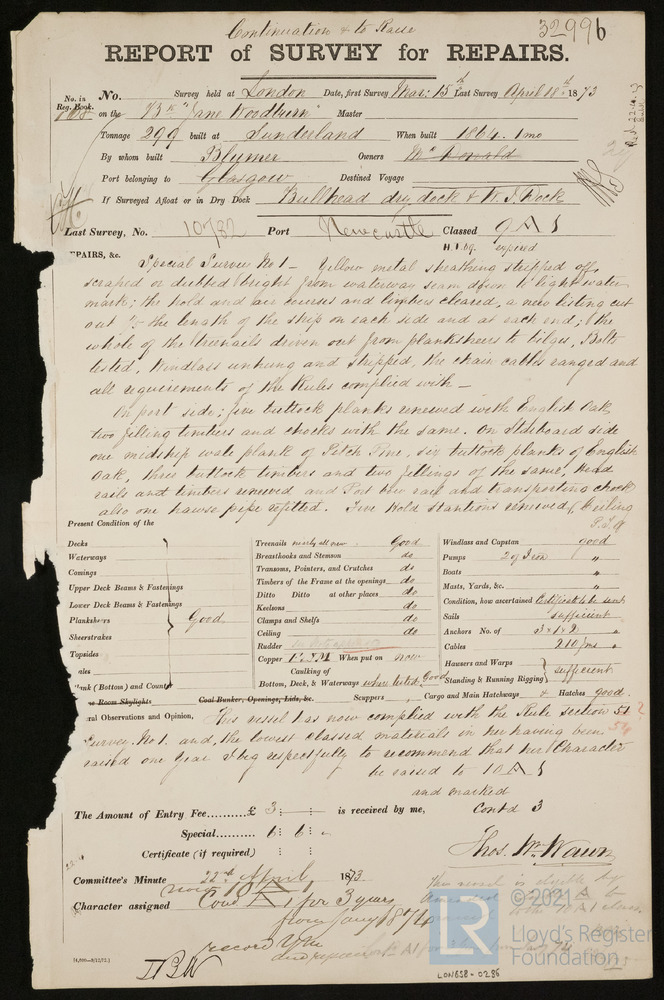 Continuation & to Raise
32996
REPORT of SURVEY for REPAIRS.
No. in Reg. Book.
No. Survey held at London Date, first Survey Mar: 15th Last Survey April 18th 1873
on the Bk "Jane Woodburn" Master
Tonnage 299 built at Sunderland When built 1864. 1mo
By whom built Blumer Owners
Port belonging to Glasgow Destined Voyage
If Surveyed Afloat or in Dry Dock Bullhead dry dock & W. I. Dock
Last Survey, No. 10782 Port Newcastle Classed 9 A 1
expired
PAIRS, &c. Special Survey No 1 - Yellow metal sheathing stripped off,
scraped or dubbed bright from waterway seam down to light water
mark; the hold and air courses and limbers cleared, a new listing cut
out the length of the ship on each side and at each end; the
whole of the treenails driven out from planksheers to bilges, Bolts
tested, Windlass unhung and stripped, the chain cables ranged and
all requirements of the Rules complied with -
On port side; five buttock planks renewed with English Oak,
two filling timbers and chocks with the same. On Starboard side
one midship wale plank of Pitch Pine, six buttock planks of English
Oak, three buttock timbers and two fillings of the same, Head
rails and timbers renewed and Port bow rail and transporting chock
also one hawse pipe refitted. Five hold stantions renewed, Ceiling
P.T.O
Present Condition of the
Decks
Waterways
Comings
Upper Deck Beams & Fastenings
Lower Deck Beams & Fastenings
Planksheers Good
Sheerstrakes
Topsides
ales
ank (Bottom) and Counter
ne Room Skylights Coal Bunker, Openings, Lids, &c.
Treenails nearly all new Good
Breasthooks and Stemson do
Transoms, Pointers, and Crutches do
Timbers of the Frame at the openings do
Ditto Ditto at other places do
Keelsons do
Clamps and Shelfs do
Ceiling do
Rudder
Copper When put on now
Caulking of
Bottom, Deck, & Waterways where tested Good
Scuppers Cargo and Main Hatchways & Hatches good.
Windlass and Capstan good
Pumps 2 of Iron "
Boats "
Masts, Yards, &c. "
Condition, how ascertained Certificate to be sent
Sails sufficient
Anchors No. of 3 & 1 & 2 "
Cables 210 fms "
Hausers and Warps
Standing & Running Rigging sufficient
ral Observations and Opinion, This vessel has now complied with the Rule section 51
Survey No 1. and, the lowest classed materials in her having been
raised one year I beg respectfully to recommend that her Character
be raised to 10 A 1
and marked
Contd 3
The Amount of Entry Fee.......... £ 3 : : is received by me,
Special.......... 6 : 6 :
Certificate (if required)
Thos. Wm. Wawn
Committee's Minute 22nd April 1873.
Character assigned now 10 A 1
Cond A 1 for 3 years
from Jany 1874
record YM
© 2021
LR
Lloyd's Register
Foundation
LON658-0286